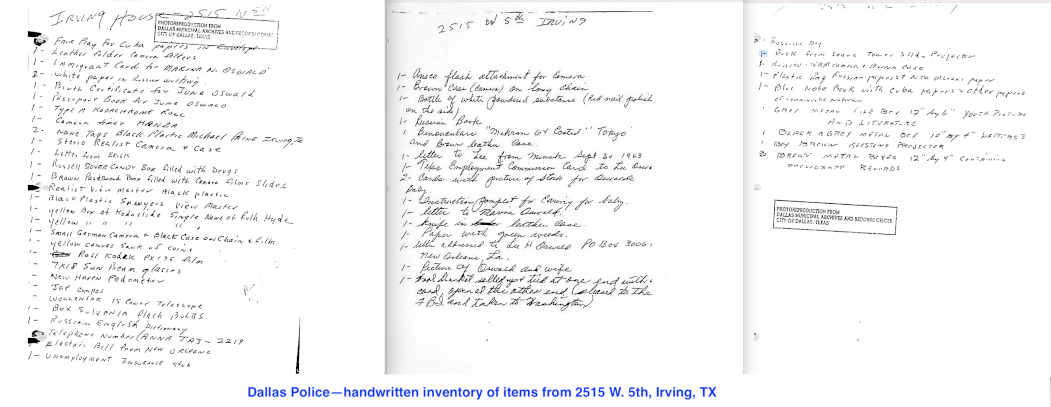 IRVING HOUSE - 2515 W 5th
PHOTOREPRODUCTION FROM
DALLAS MUNICIPAL ARCHIVES AND RECORDS CENTER
CITY OF DALLAS, TEXAS
- FAIR Play For Cuba papers in Envelope
1- Leather Folder Camera filters
1- Immigrant Card for MARINA N. OSWALD
2- white paper in Russian writing
1- Birth Certificate for JUNE Oswald
1- Passport Book for JUNE OSWALD
1- Type A KODACHROME ROLL
1- Camera
2- Name Tags Black Plastic Michael PAINE IRVING, Tx
1- Stereo Realist Camera & Case
- Letter from
- RUSSELL STOVER CANDY Box filled with Drugs
- BROWN Pasteboard Box filled with Camera films Slides
- Realist View Master Black plastic
1- Black Plastic Sawyers View Master
- Yellow Box of Kodaslide Single Name of Ruth Hyde
- Yellow " " " "
- Small German Camera & Black Case on Chain & Film
- Yellow canvas sack of coins
- Roll Kodak PX 175 film
- 7X18 Sun Beam glasses
- NEW HAVEN Pedometer
- JAP compas
- WOLLENSAK 15 Power Telescope
1- Box SYLVANIA flash BULBS
- Russian English Dictionary
- Telephone Number (ANNA TA3 - 2219
- Electric Bill from NEW ORLEANS
1- UNemployment INSURANCE stub
2515 W 5th IRVING
1- Ansco flash attachment for camera
1- Brown Case (Camera) on long chain
1- Bottle of white powdered substance (Red nail polish
on the side)
1- Russian Book
1 Binoculars "Tokyo
and Brown leather case.
1- letter to Lee from Minsk Sept 30 1963
1- Texas Employment Commission Card to Lee
2- Cards with picture of Stork for
baby.
1- Instruction pamplet for Caring for baby.
1- letter to Marina Oswald.
1- Knife in leather Case.
1- Paper with green weeds.
1- letter addressed to Lee H Oswald PO Box 30061
New Orleans, La.
1- Picture of Oswald and wife
1- tied at one end with a
cord, open at the other end (released to the
FBI and taken to Washington)
- Russian
1- Book from Sears Tower Slide Projector
1- Plastic Bag Russian papers & New Orleans paper
1- Blue Note Book with Cuba papers & other papers
GREY METAL FILE BOX 12" by 6" YOUTH PICTURES
AND LITERATURE
1 BLACK & GREY METAL BOX 10" by 4" LETTERS
1 BOX BROWN PROJECTOR
3 BROWN METAL BOXES 12" by 4" Containing
PHONOGRAPH RECORDS
PHOTOREPRODUCTION FROM
DALLAS MUNICIPAL ARCHIVES AND RECORDS CENTER
CITY OF DALLAS, TEXAS
Dallas Police—handwritten inventory of items from 2515 W. 5th, Irving, TX